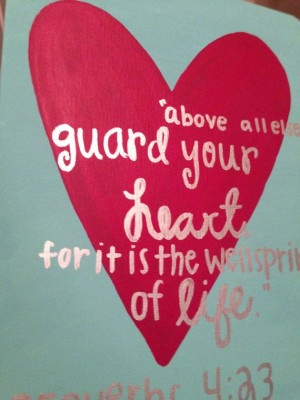 "above all else
guard your
heart,
for it is the wellspri
of life."
proverbs 4:23